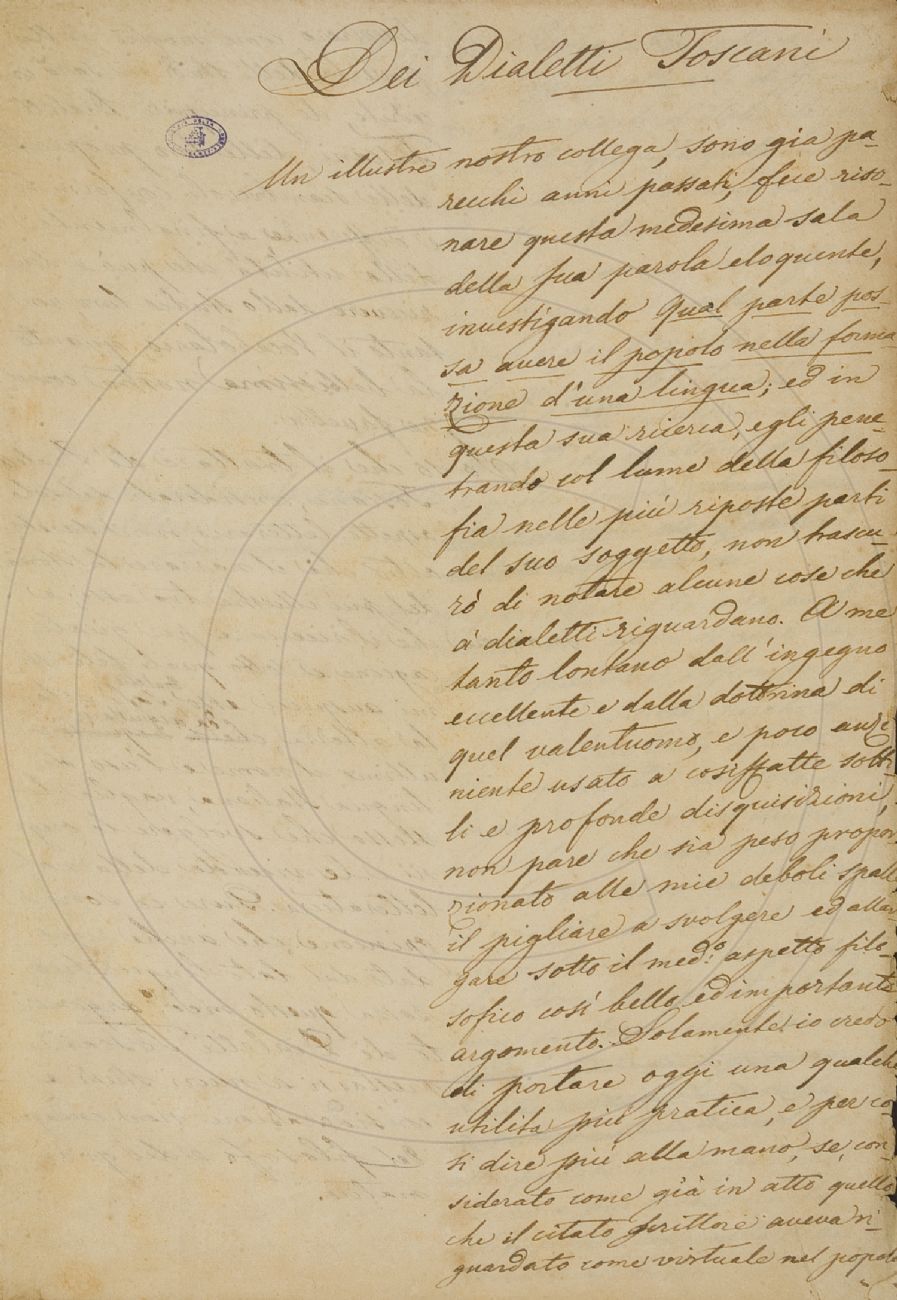 Dei Dialetti Toscani
Un illustre nostro collega, sono già pa-
recchi anni passati, fece riso-
nare questa medesima sala
della sua parola eloquente,
investigando Qual parte pos-
sa avere il popolo nella forma
zione d'una lingua; ed in
questa sua ricerca, egli pene-
trando col lume della filoso-
fia nelle più riposte parti
del suo soggetto, non trascu-
rò di notare alcune cose che
a' dialetti riguardano. A me
tanto lontano dall'ingegno
eccellente e dalla dottrina di
quel valentuomo, e poco anzi
niente usato a cosiffatte sotti-
li e profonde disquisizioni,
non pare che sia peso propor-
zionato alle mie deboli spalle
il pigliare a svolgere ed allar-
gare sotto il med.o aspetto filo-
sofico così bello ed importante
argomento. Solamente io credo
di portare oggi una qualche
utilità più pratica, e per co-
sì dire più alla mano, se, con-
siderato come già in atto quello
che il citato scrittore aveva ri-
guardato come virtuale nel popolo